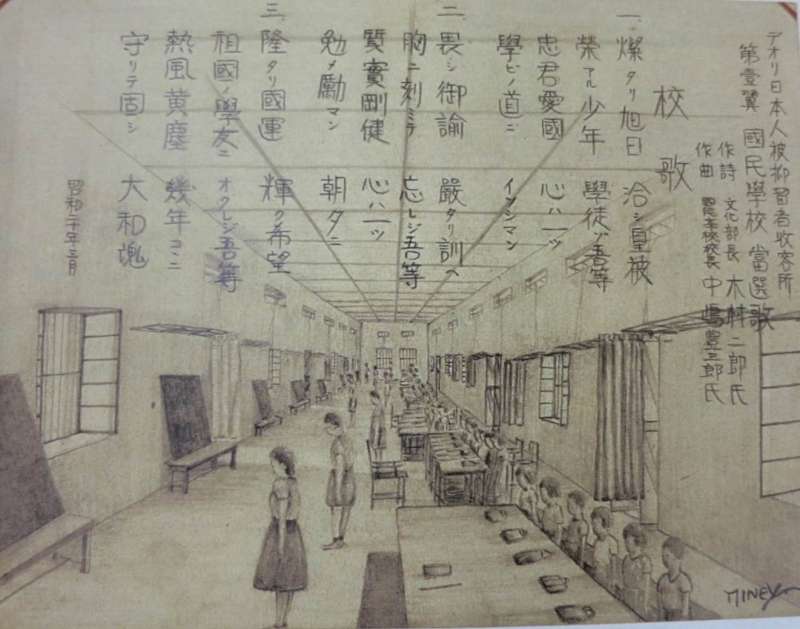 デオリ日本人被抑留者收容所
第壹翼 國民學校 當選歌
作詩 文化部長 木村二郎氏
作曲 校長 中嶋豊三郎氏
校歌
一、燦タリ旭日 洽シ皇被
榮アル少年 學徒ゾ吾等
忠君愛國 心ハ一ツ
學ビノ道ニ イソシマン
二、畏シ御諭 嚴タリ訓ヘ
胸ニ刻ミテ 忘レジ吾等
質實剛健 心ハ一ツ
勉メ勵マン 朝夕ニ
三、隆タリ國運 輝ク希望
祖國ノ學友ニ オクレジ吾等
熱風黄塵 幾年コヽニ
守リテ固シ 大和魂
昭和二十年三月